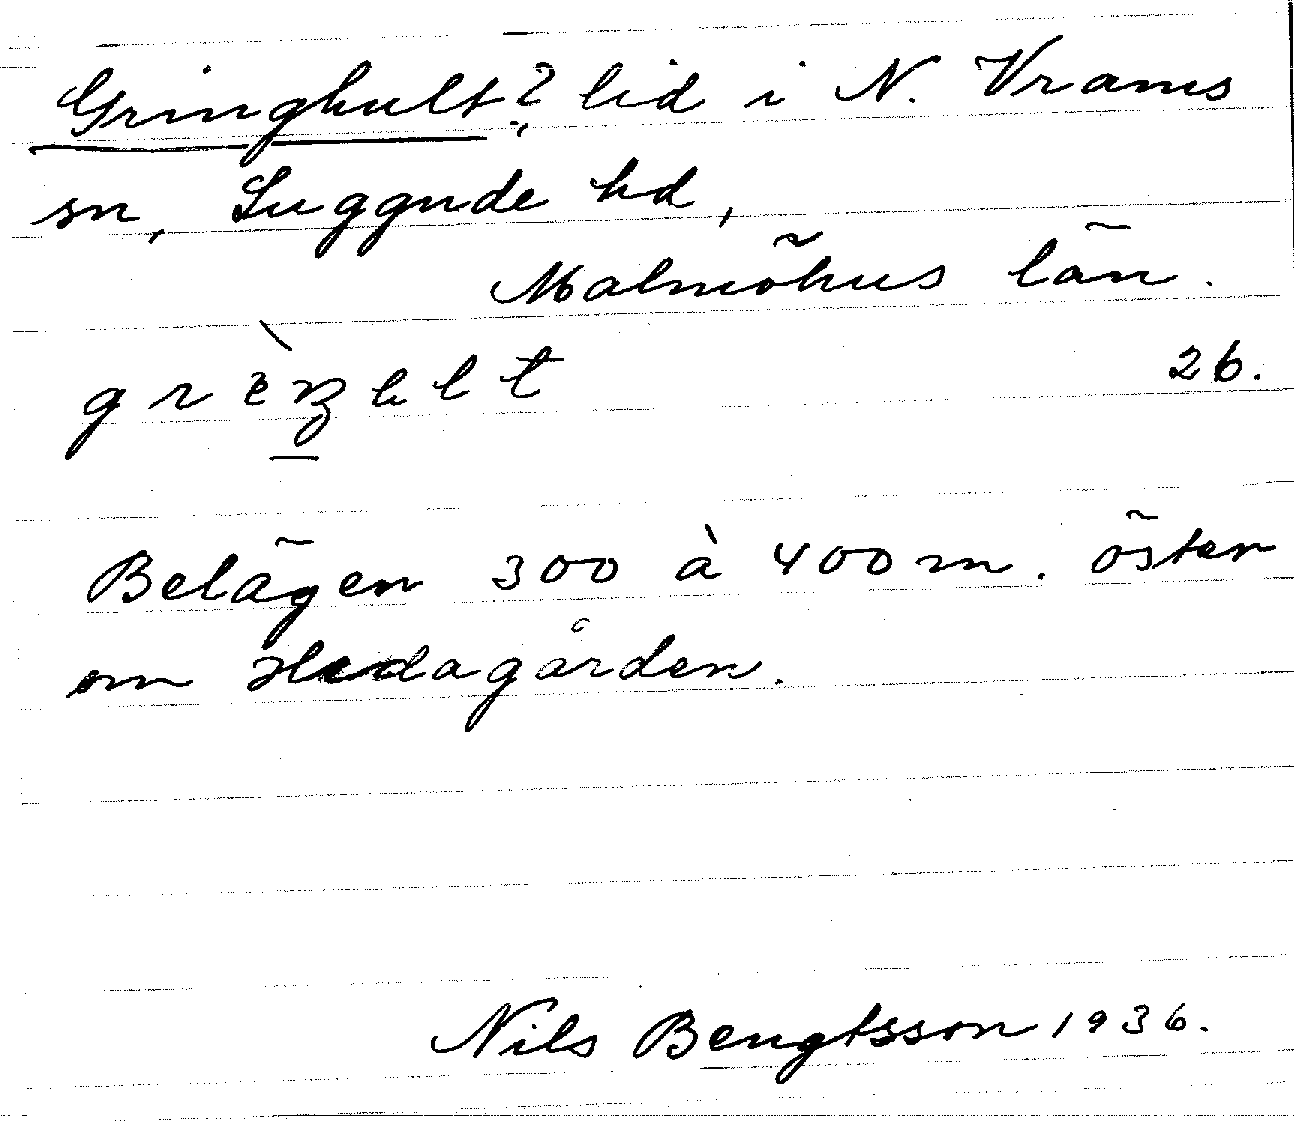 Gringhult? lid i N. Vrams
sn, Luggude hd,
Malmöhus län.
grèŋhlt 26.
Belägen 300 à 400 m. öster
om Hedagården.
Nils Bengtsson 1936.